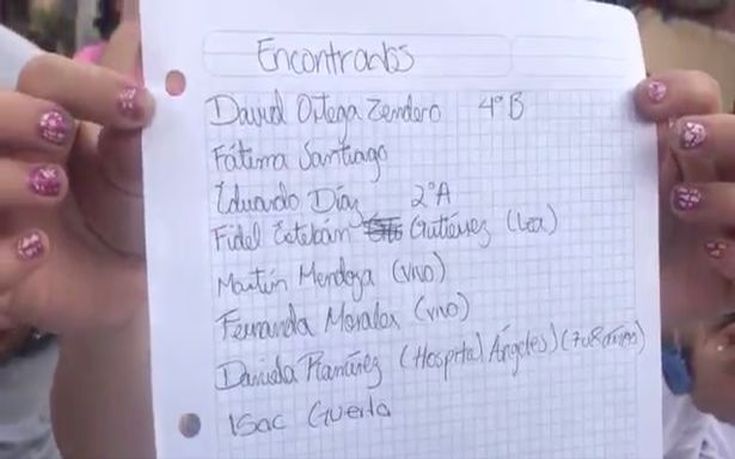 Encontrados
David Ortega Zendero 4° B
Fátima Santiago
Eduardo Díaz 2° A
Fidel Esteban Gutiérrez (Lea)
Martín Mendoza (vivo)
Fernanda Morales (vivo)
Daniela Ramírez (Hospital Ángeles) (7 u 8 años)
Isac Guerta